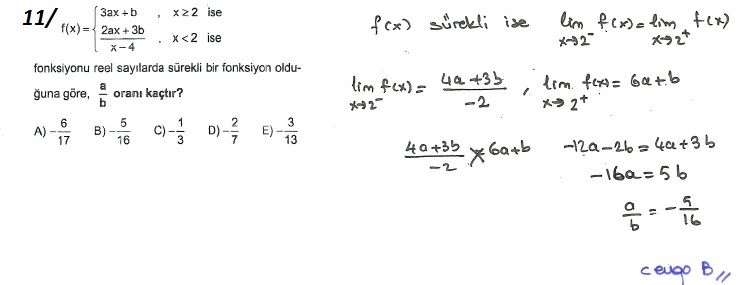 11/
f(x) = { 3ax + b , x ≥ 2 ise
(2ax + 3b)/(x – 4) , x < 2 ise
fonksiyonu reel sayılarda sürekli bir fonksiyon oldu-
ğuna göre, a/b oranı kaçtır?
A) –6/17 B) –5/16 C) –1/3 D) –2/7 E) –3/13
f(x) sürekli ise lim x→2⁻ f(x) = lim x→2⁺ f(x)
lim x→2⁻ f(x) = (4a+3b)/-2 , lim x→2⁺ f(x) = 6a+b
(4a+3b)/-2 = 6a+b -12a-2b = 4a+3b
-16a = 5b
a/b = -5/16
cevap B //